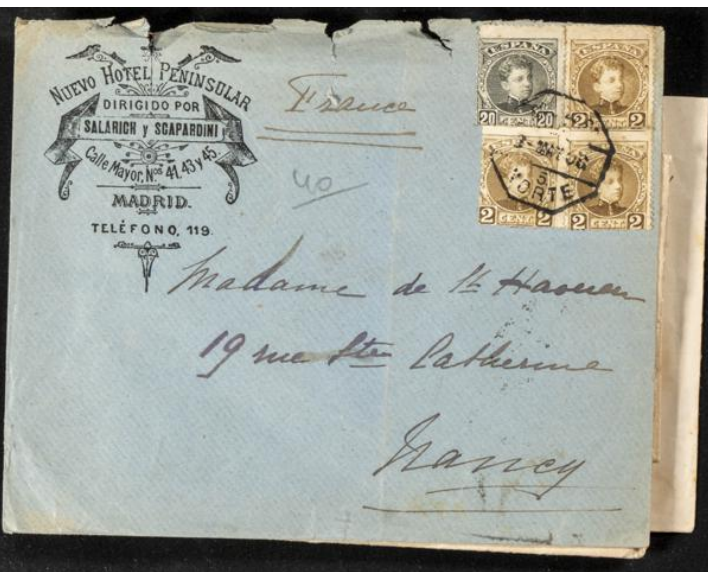 NUEVO HOTEL PENINSULAR
DIRIGIDO POR
SALARICH Y SCAPARDINI
Calle Mayor, Nos 41, 43 y 45
MADRID.
TELÉFONO, 119.
France
40
ESPAÑA
20 20
ESPAÑA
2 2
ESPAÑA
2 CENT. 2
ESPAÑA
2 CENT. 2
NORTE
Madame de St
19 rue Ste Catherine
Nancy